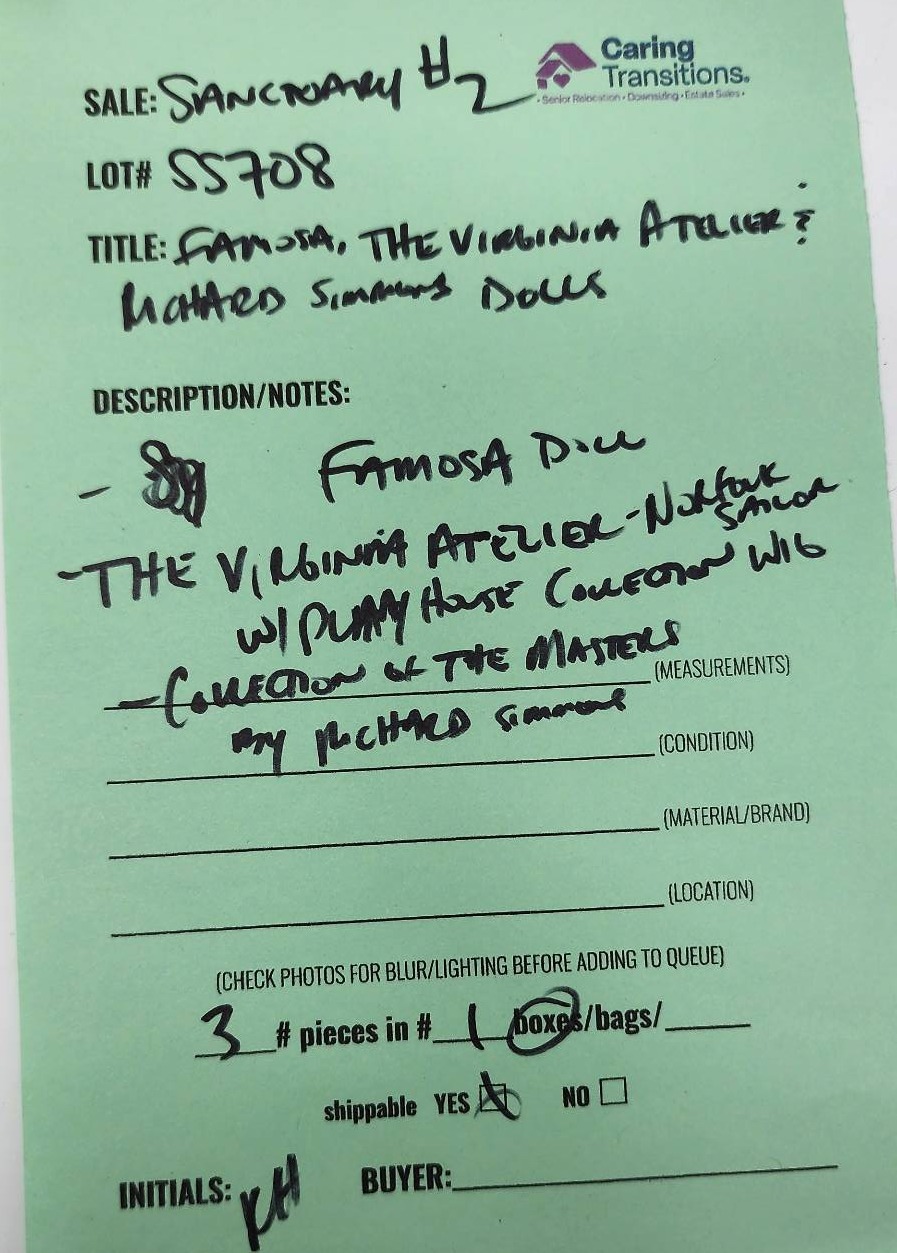 SALE: SANCTUARY #2
Caring
Transitions.
• Senior Relocation • Downsizing • Estate Sales •
LOT# SS708
TITLE: FAMOSA, THE VIRGINIA ATELIER &
RICHARD SIMMONS DOLLS
DESCRIPTION/NOTES:
- FAMOSA DOLL
- THE VIRGINIA ATELIER - NORFOLK
SAILOR
W/ PLAYHOUSE COLLECTION WIG
- COLLECTION OF THE MASTERS (MEASUREMENTS)
BY RICHARD SIMMONS (CONDITION)
(MATERIAL/BRAND)
(LOCATION)
(CHECK PHOTOS FOR BLUR/LIGHTING BEFORE ADDING TO QUEUE)
3 # pieces in # 1 boxes/bags/
shippable YES NO
INITIALS: KH BUYER: